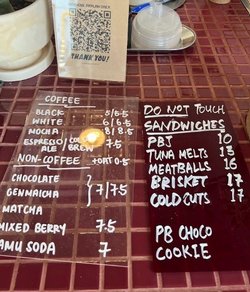 THANK YOU!
COFFEE
BLACK 5/5.5
WHITE 6/6.5
MOCHA 8/8.5
ESPRESSO/
ALE / BREW 7.5
NON-COFFEE +OAT 0.5
CHOCOLATE
GENMAICHA } 7/7.5
MATCHA
MIXED BERRY 7.5
AMU SODA 7
DO NOT TOUCH
SANDWICHES
PBJ 10
TUNA MELTS 13
MEATBALLS 16
BRISKET 17
COLD CUTS 17
PB CHOCO
COOKIE